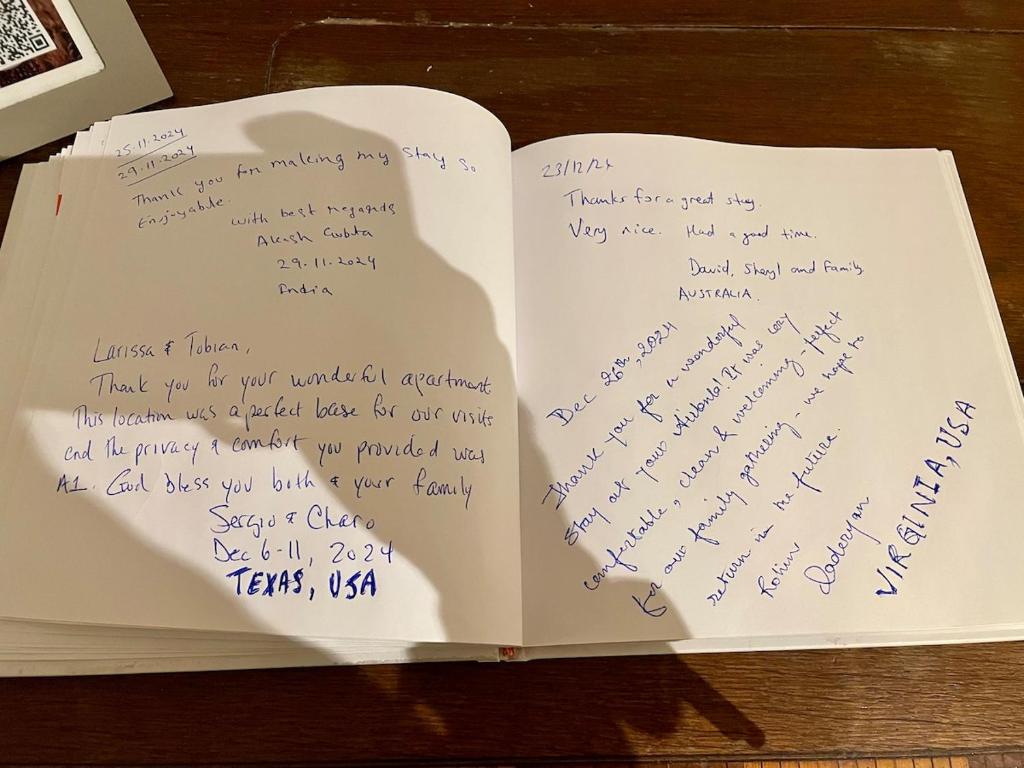 25.11.2024
29.11.2024
Thank you for making my stay so
Enjoyable.
with best regards
Akash Gupta
29.11.2024
India
Larissa & Tobian,
Thank you for your wonderful apartment
This location was a perfect base for our visits
and the privacy & comfort you provided was
A1. God bless you both & your family
Sergio & Charo
Dec 6-11, 2024
TEXAS, USA
23/12/24
Thanks for a great stay.
Very nice. Had a good time.
David, Sheryl and Family.
AUSTRALIA.
Dec 26th, 2024
Thank you for a wonderful
stay at your Airbnb! It was cozy
comfortable, clean & welcoming - perfect
for our family gathering - we hope to
return in the future.
VIRGINIA, USA